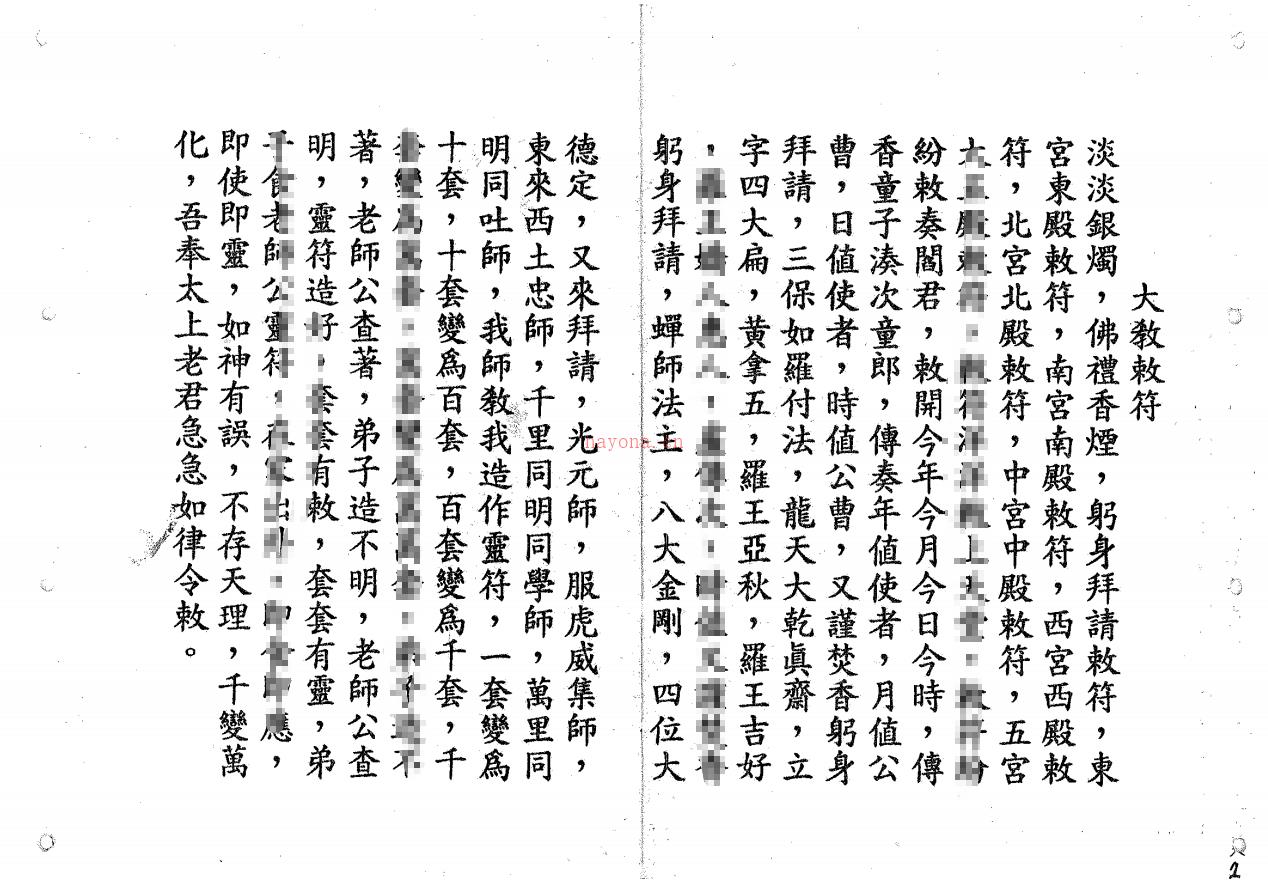 大教敕符
淡淡銀燭，佛禮香煙，躬身拜請敕符，東
宮東殿敕符，南宮南殿敕符，西宮西殿敕
符，北宮北殿敕符，中宮中殿敕符，五宮
紛敕奏閻君，敕開今年今月今日今時，傳
香童子湊次童郎，傳奏年值使者，月值公
曹，日值使者，時值公曹，又謹焚香躬身
拜請，三保如羅付法，龍天大乾眞齋，立
字四大扁，黃拿五，羅王亞秋，羅王吉好
躬身拜請，蟬師法主，八大金剛，四位大
德定，又來拜請，光元師，服虎威集師，
東來西土忠師，千里同明同學師，萬里同
明同吐師，我師教我造作靈符，一套變爲
十套，十套變爲百套，百套變爲千套，千
著，老師公查著，弟子造不明，老師公查
明，靈符造好，套套有敕，套套有靈，弟
老師公靈符，應，
即使即靈，如神有誤，不存天理，千變萬
化，吾奉太上老君急急如律令敕。
nayona.cn
2